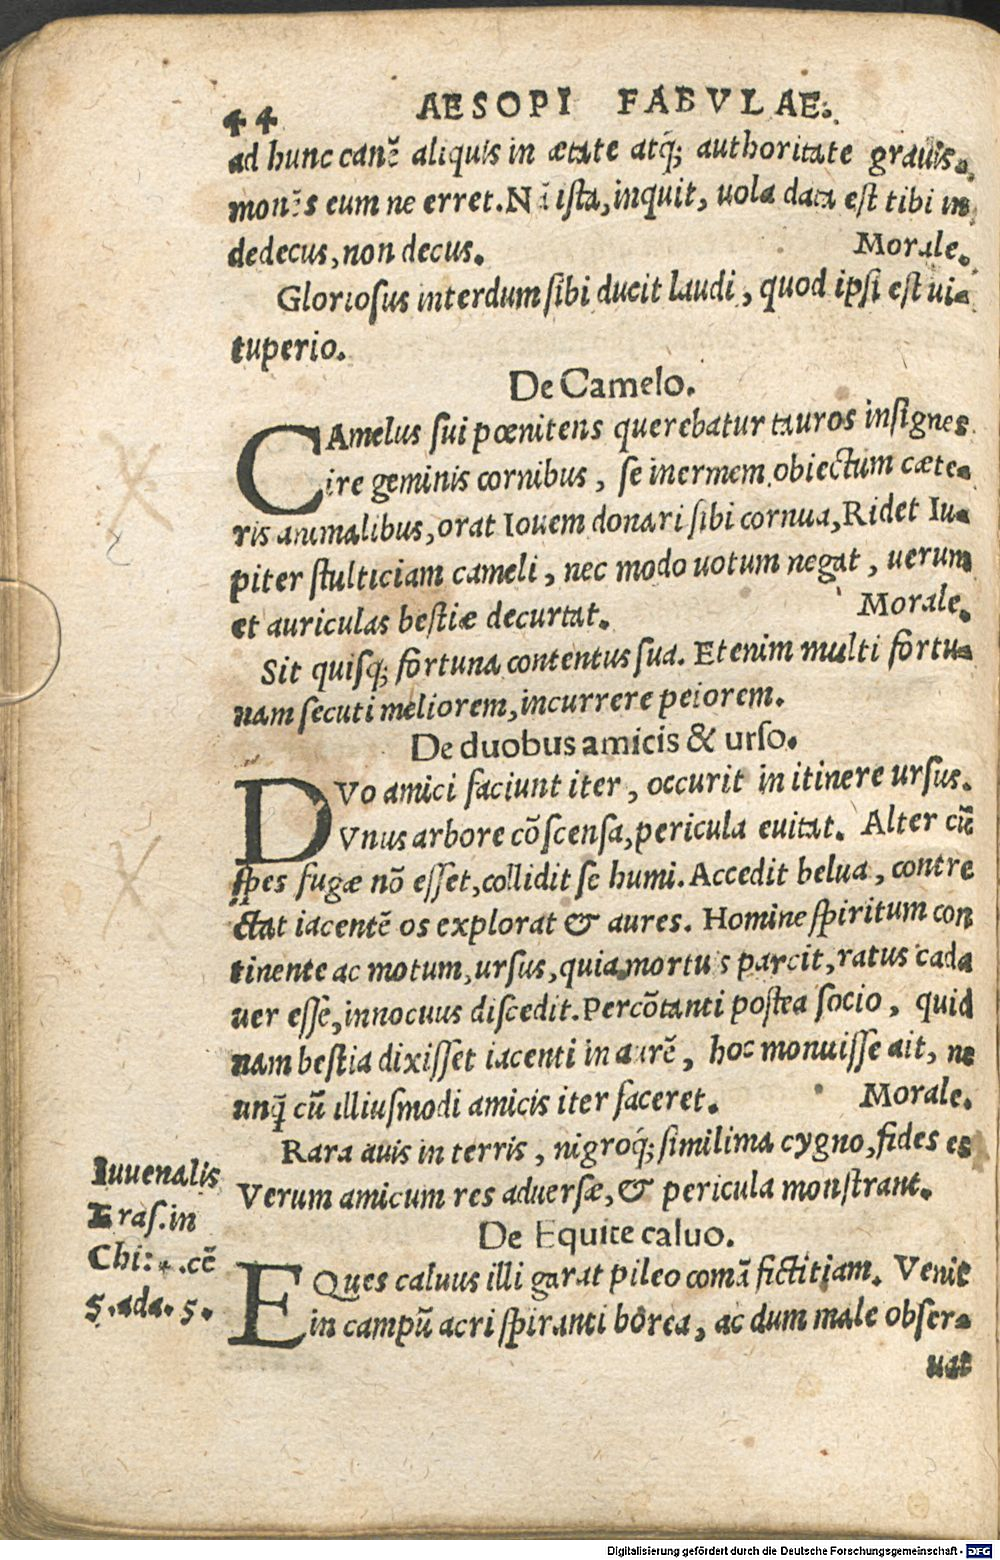 44 AESOPI FABVLAE.
ad hunc canē aliquis in ætate atq; authoritate grauis.
monēs eum ne erret. Nā ista, inquit, uola data est tibi in
dedecus, non decus. Morale.
Gloriosus interdum sibi ducit laudi, quod ipsi est ui-
tuperio.
De Camelo.
CAmelus sui pœnitens querebatur tauros insignes
ire geminis cornibus, se inermem obiectum cæte-
ris animalibus, orat Iouem donari sibi cornua, Ridet Iu-
piter stulticiam cameli, nec modo uotum negat, uerum
et auriculas bestiæ decurtat. Morale.
Sit quisq; fortuna contentus sua. Etenim multi fortu-
nam secuti meliorem, incurrere peiorem.
De duobus amicis & urso.
DVo amici faciunt iter, occurit in itinere ursus.
Vnus arbore cōscensa, pericula euitat. Alter cū
spes fugæ nō esset, collidit se humi. Accedit belua, contre
ctat iacentē os explorat & aures. Homine spiritum con
tinente ac motum, ursus, quia mortuis parcit, ratus cada
uer esse, innocuus discedit. Percōtanti postea socio, quid
nam bestia dixisset iacenti in aurē, hoc monuisse ait, ne
unq̄ cū illiusmodi amicis iter faceret. Morale.
Rara auis in terris, nigroq; similima cygno, fides es
Verum amicum res aduersæ, & pericula monstrant.
Iuuenalis
Eras. in
cē
5. ada. 5.
De Equite caluo.
EQues caluus illigarat pileo comā fictitiam. Venit
in campū acri spiranti borea, ac dum male obser-
uat
Digitalisierung gefördert durch die Deutsche Forschungsgemeinschaft - DFG